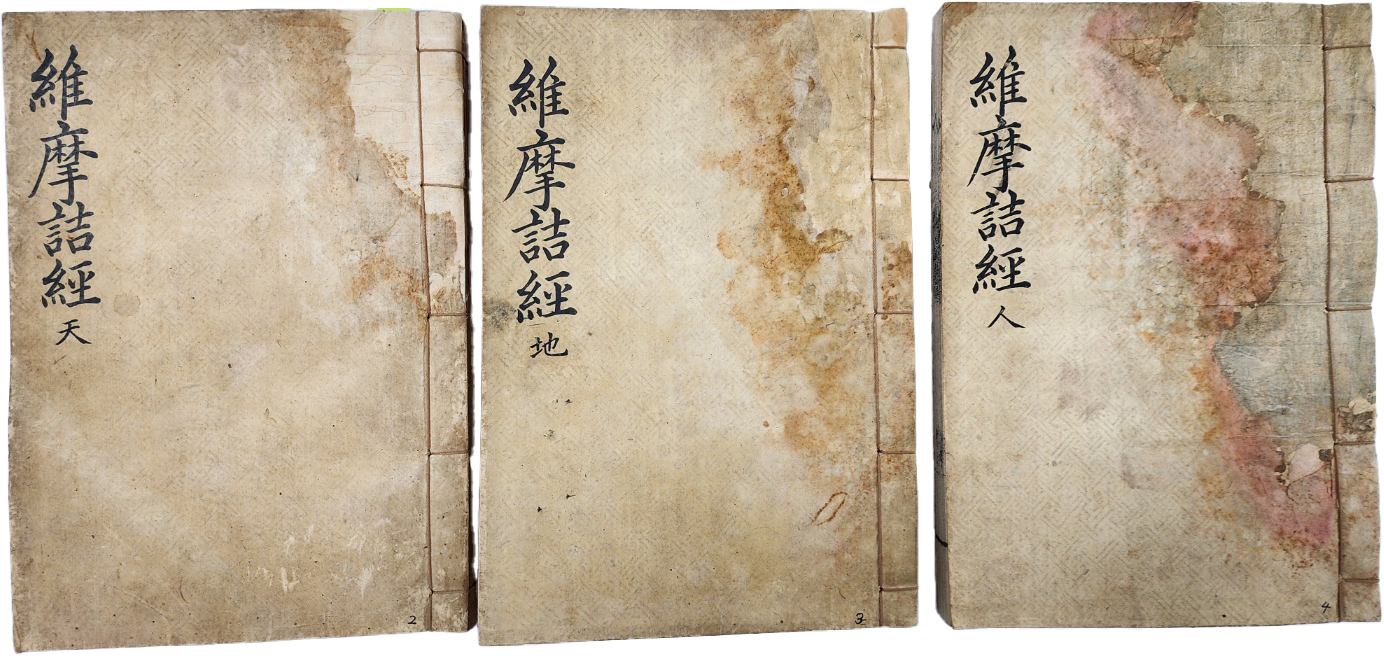 維摩詰經
天
2
維摩詰經
地
3
維摩詰經
人
4